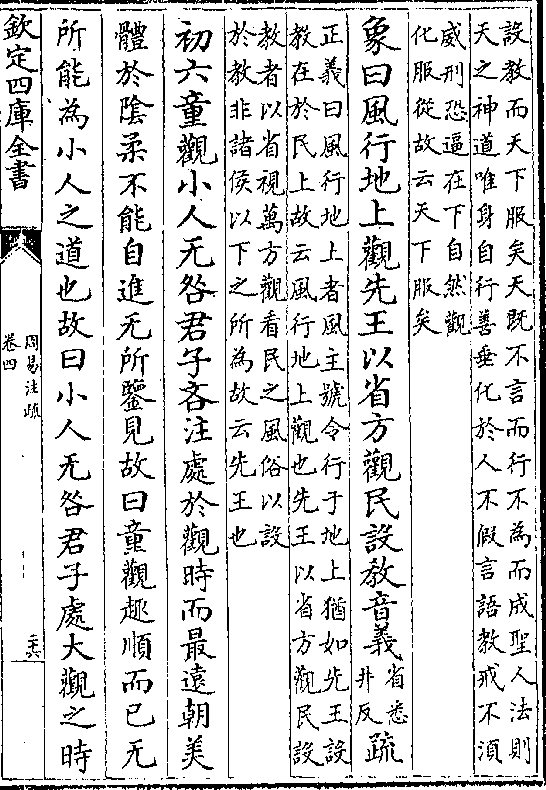 設教而天下服矣天既不言而行不為而成聖人法則
天之神道唯身自行善垂化於人不假言語教戒不須
威刑恐逼在下自然觀
化服從故云天下服矣
象曰風行地上觀先王以省方觀民設教音義
省悉
井反
疏
正義曰風行地上者風主號令行于地上猶如先王設
教在於民上故云風行地上觀也先王以省方觀民設
教者以省視萬方觀看民之風俗以設
於教非諸侯以下之所為故云先王也
初六童觀小人无咎君子吝注處於觀時而最逺朝美
體於陰柔不能自進无所鑒見故曰童觀趣順而已无
所能為小人之道也故曰小人无咎君子處大觀之時
欽定四庫全書
周易注疏
卷四